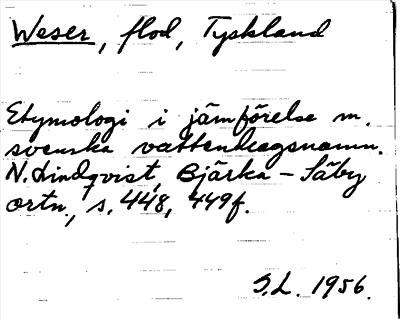 Weser, flod, Tyskland
Etymologi i jämförelse m.
svenska vattendragsnamn.
N. Lindqvist, Bjärka-Säby
ortn., s. 448, 449f.
S.L. 1956.